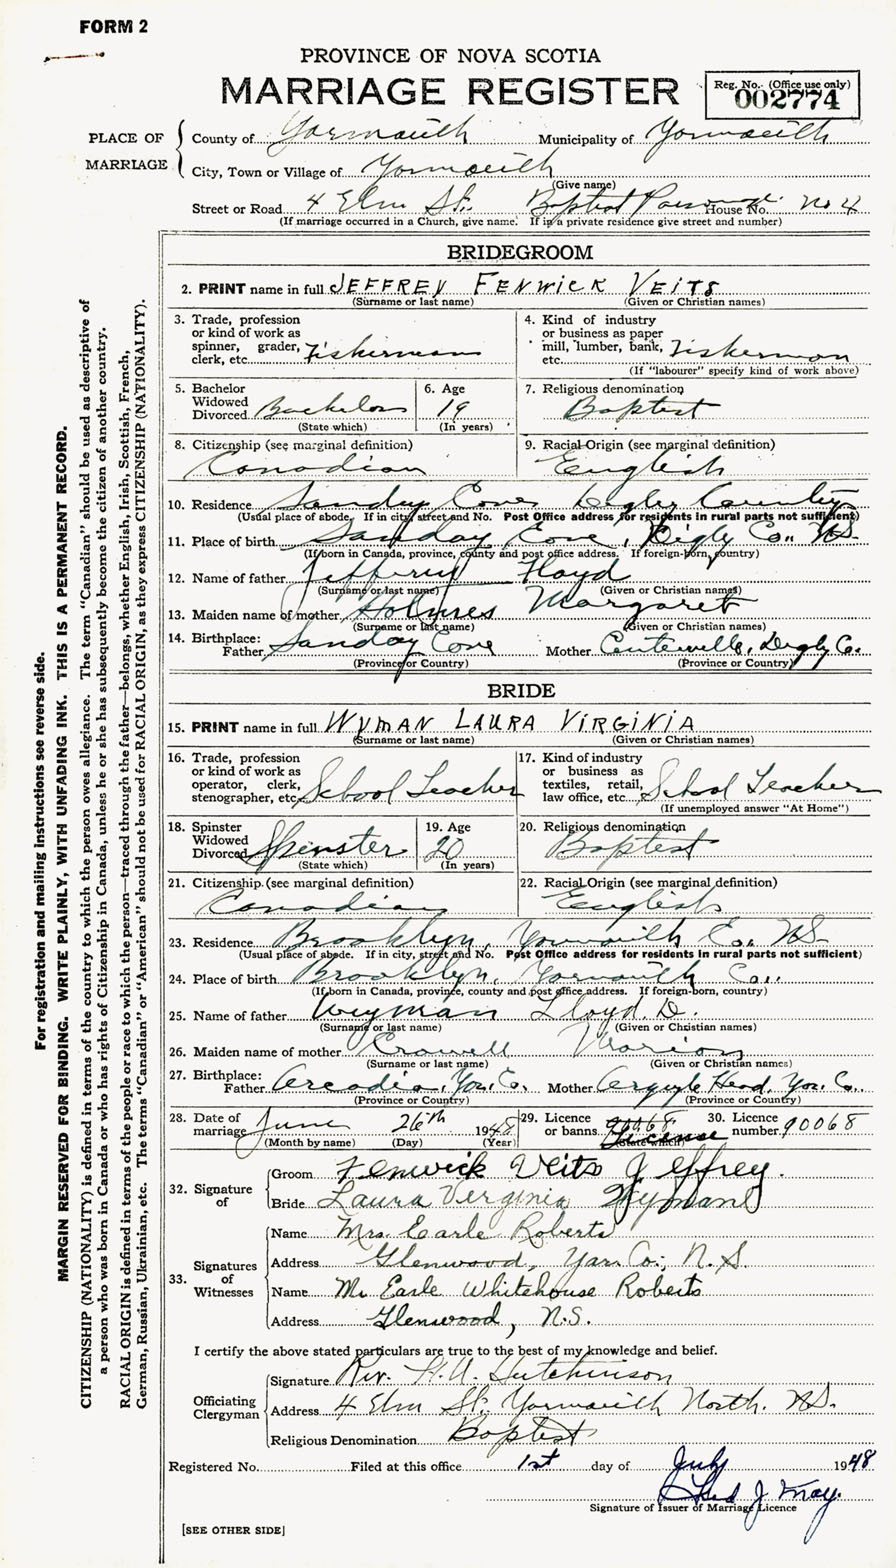 FORM 2
PROVINCE OF NOVA SCOTIA
MARRIAGE REGISTER
Reg. No. (Office use only)
002774
PLACE OF MARRIAGE
County of Yarmouth Municipality of Yarmouth
City, Town or Village of Yarmouth
(Give name)
Street or Road 4 Elm St. Baptist Parsonage House No. No 4
(If marriage occurred in a Church, give name. If in a private residence give street and number)
BRIDEGROOM
2. PRINT name in full JEFFREY FENWICK VEITS
(Surname or last name) (Given or Christian names)
3. Trade, profession or kind of work as spinner, grader, clerk, etc. Fisherman
4. Kind of industry or business as paper mill, lumber, bank, etc. Fisherman
(If "labourer" specify kind of work above)
5. Bachelor Widowed Divorced Bachelor
(State which)
6. Age 19
(In years)
7. Religious denomination
Baptist
8. Citizenship (see marginal definition)
Canadian
9. Racial Origin (see marginal definition)
English
10. Residence Sanday Cove Digby County
(Usual place of abode. If in city, street and No. Post Office address for residents in rural parts not sufficient)
11. Place of birth Sanday Cove, Digby Co., NS
(If born in Canada, province, county and post office address. If foreign-born, country)
12. Name of father Jeffrey Floyd
(Surname or last name) (Given or Christian names)
13. Maiden name of mother Holmes Margaret
(Surname or last name) (Given or Christian names)
14. Birthplace:
Father Sanday Cove Mother Centerville, Digby Co.
(Province or Country) (Province or Country)
BRIDE
15. PRINT name in full WYMAN LAURA VIRGINIA
(Surname or last name) (Given or Christian names)
16. Trade, profession or kind of work as operator, clerk, stenographer, etc. School Teacher
17. Kind of industry or business as textiles, retail, law office, etc. School Teacher
(If unemployed answer "At Home")
18. Spinster Widowed Divorced Spinster
(State which)
19. Age 20
(In years)
20. Religious denomination
Baptist
21. Citizenship (see marginal definition)
Canadian
22. Racial Origin (see marginal definition)
English
23. Residence Brooklyn, Yarmouth Co. NS
(Usual place of abode. If in city, street and No. Post Office address for residents in rural parts not sufficient)
24. Place of birth Brooklyn, Yarmouth Co.
(If born in Canada, province, county and post office address. If foreign-born, country)
25. Name of father Wyman Lloyd D.
(Surname or last name) (Given or Christian names)
26. Maiden name of mother Crowell Marion
(Surname or last name) (Given or Christian names)
27. Birthplace:
Father Arcadia, Yar. Co. Mother Argyle Head, Yar. Co.
(Province or Country) (Province or Country)
28. Date of marriage June 26th 1948
(Month by name) (Day) (Year)
29. Licence or banns 90068 License
(State which)
30. Licence number 90068
32. Signature of
Groom Fenwick Veits Jeffrey.
Bride Laura Verginia Wyman
33. Signatures of Witnesses
Name Mrs. Earle Roberts
Address Glenwood, Yar. Co., N.S.
Name Mr Earle Whitehouse Roberts
Address Glenwood, N.S.
I certify the above stated particulars are true to the best of my knowledge and belief.
Officiating Clergyman
Signature Rev. H.A. Hutchinson
Address 4 Elm St., Yarmouth North. NS.
Religious Denomination Baptist
Registered No. Filed at this office 1st day of July 1948
Signature of Issuer of Marriage Licence
[SEE OTHER SIDE]
For registration and mailing instructions see reverse side.
MARGIN RESERVED FOR BINDING. WRITE PLAINLY, WITH UNFADING INK. THIS IS A PERMANENT RECORD.
CITIZENSHIP (NATIONALITY) is defined in terms of the country to which the person owes allegiance. The term "Canadian" should be used as descriptive of
a person who was born in Canada or who has rights of Citizenship in Canada, unless he or she has subsequently become the citizen of another country.
RACIAL ORIGIN is defined in terms of the people or race to which the person—traced through the father—belongs, whether English, Irish, Scottish, French,
German, Russian, Ukrainian, etc. The terms "Canadian" or "American" should not be used for RACIAL ORIGIN, as they express CITIZENSHIP (NATIONALITY).